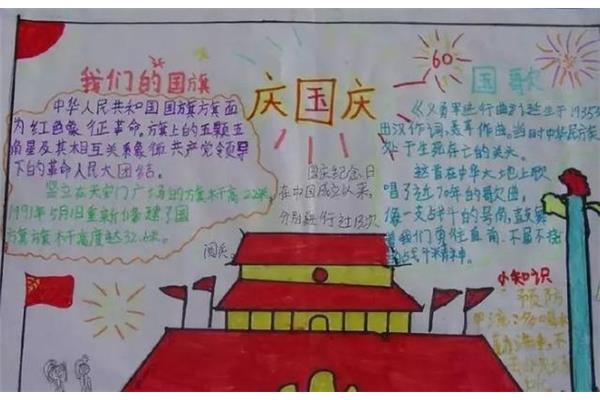 我们的国旗
中华人民共和国国旗旗面
为红色象征革命。旗上的五颗五
角星及其相互关系象征共产党领导
下的革命人民大团结。
竖立在天安门广场的旗杆高22米
1991年5月1日重新修建了国
旗旗杆高度达32.6米。
庆国庆
国庆纪念日
在中国成立以来,
分别阅兵。
60
国歌
《义勇军进行曲》诞生于1935
田汉作词,聂耳作曲,当时中华民族
处于生死存亡的关头。
这首在中华大地上歌
唱了近70年的歌曲。
像一支战斗的号角,鼓
着我们勇往直前,不屈不挠
小知识
预防